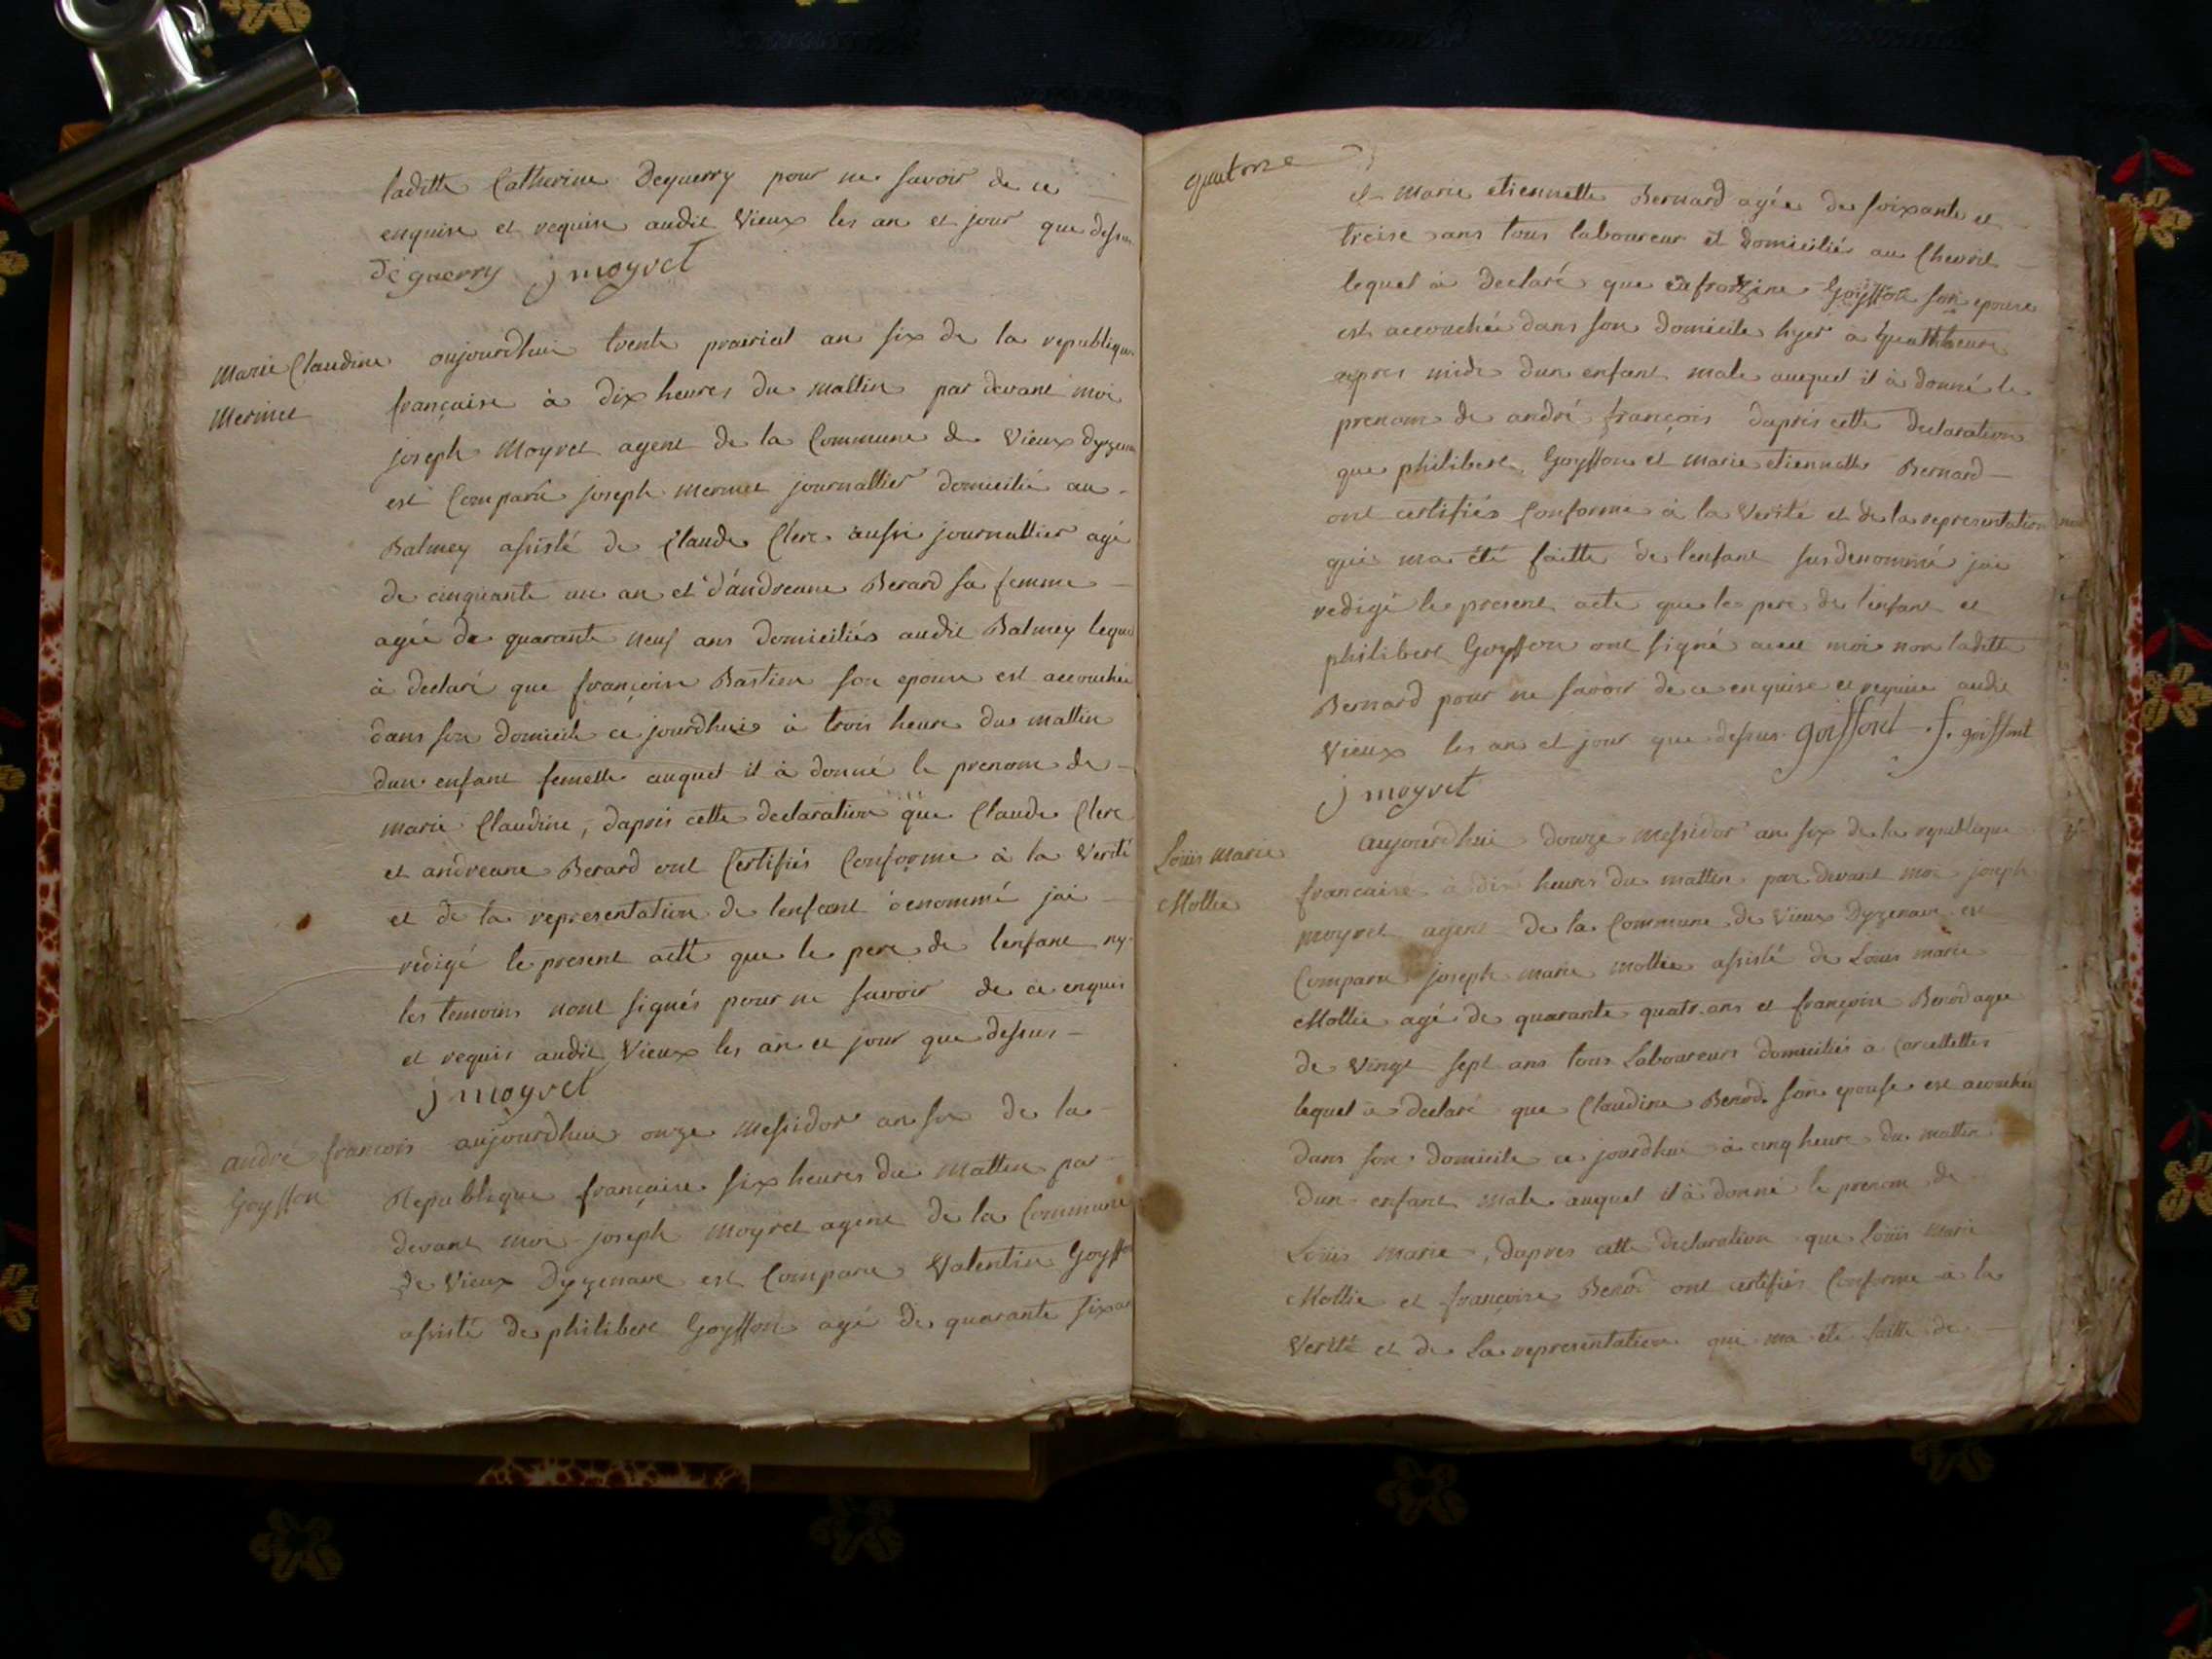 laditte Catherine Deguerry pour ne savoir de ce
enquise et requise audit Vieux les an et jour que dessus
deguerry j moyret
Marie Claudine
Mermet
aujourdhui trente prairial an six de la republique
française à dix heures du mattin par devant moi
joseph Moyret agent de la Commune de Vieux dyzenave
est Comparu joseph mermet journallier domicilié au
Balmey assisté de Claude Clerc aussi journallier agé
de cinquante un an et d'andreane Berard sa femme
agée de quarante neuf ans domiciliés audit Balmey lequel
à declaré que françoise Bastien son epouse est accouchée
dans son domicile ce jourdhui à trois heure du mattin
dun enfant femelle auquel il à donné le prenom de
marie Claudine, dapres cette declaration que Claude Clerc
et andreane Berard ont Certifiés Conforme à la Verité
et de la representation de lenfant denommé jai
redigé le present acte que le pere de lenfant ny
les temoins nont signés pour ne savoir de ce enquis
et requis audit Vieux les an et jour que dessus
j moyret
andré françois
Goyffon
aujourdhui onze Messidor an six de la
Republique française six heures du Mattin par
devant moi joseph moyret agent de la Commune
de Vieux Dyzenave est Comparu Valentin Goyffon
assisté de philibert Goyffon agé de quarante six ans
quatorze
et marie etiennette Bernard agée de soixante et
treise ans tous laboureur et domiciliés au Chevril
lequel à declaré que Goyffon son epouse
est accouchée dans son domicile hyer à quatt heure
apres midi dun enfant male auquel il à donné le
prenom de andré françois dapres cette declaration
que philibert Goyffon et marie etiennette Bernard
ont certifiés Conforme à la Verité et de la representation
qui ma été faitte de lenfant susdenommé jai
redigé le present acte que le pere de lenfant et
philibert Goyffon ont signé avec moi non laditte
Bernard pour ne savoir de ce enquise et requise audit
Vieux les an et jour que dessus goiffont f. goiffont
j moyret
Loüis Marie
Mollie
aujourdhui douze Messidor an six de la republique
française à dix heures du mattin par devant moi joseph
moyret agent de la Commune de Vieux Dyzenave est
Comparu joseph marie mollie assisté de Louis marie
Mollie agé de quarante quatr ans et françoise Benod agee
de Vingt sept ans tous Laboureurs domiciliés a Corcellettes
lequel a declaré que Claudine Benod son epouse est acouchée
dans son domicile ce jourdhui à cinq heure du mattin
dun enfant male auquel il à donné le prenom de
Loüis Marie, dapres cette declaration que Loüis Marie
Mollie et françoise Benod ont certifiés Conforme à la
Verité et de La representation qui ma été faitte de